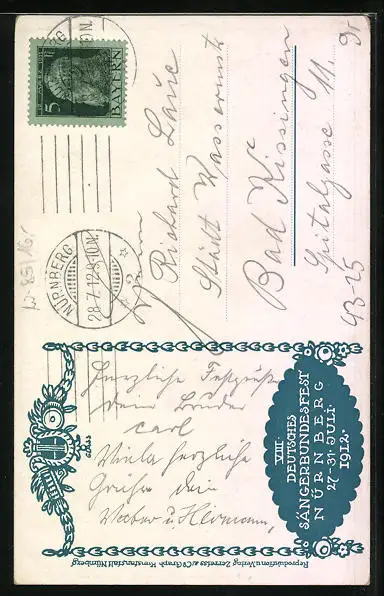 5 BAYERN
NÜRNBERG
28.7.12.8-9.N.
Herrn
Richard Laue
Städt. Wasseramt
Bad Kissingen
Spitalgasse 11.
43-25
Herzliche Festgrüße
dein Bruder
Carl
Viele herzliche
Grüße dein
Vater u. Hermann,
VIII.
DEUTSCHES
SÄNGERBUNDESFEST
NÜRNBERG
27-31 JULI
1912.
Reproduktion u. Verlag Zerreiss & Co Graph. Kunstanstalt Nürnberg